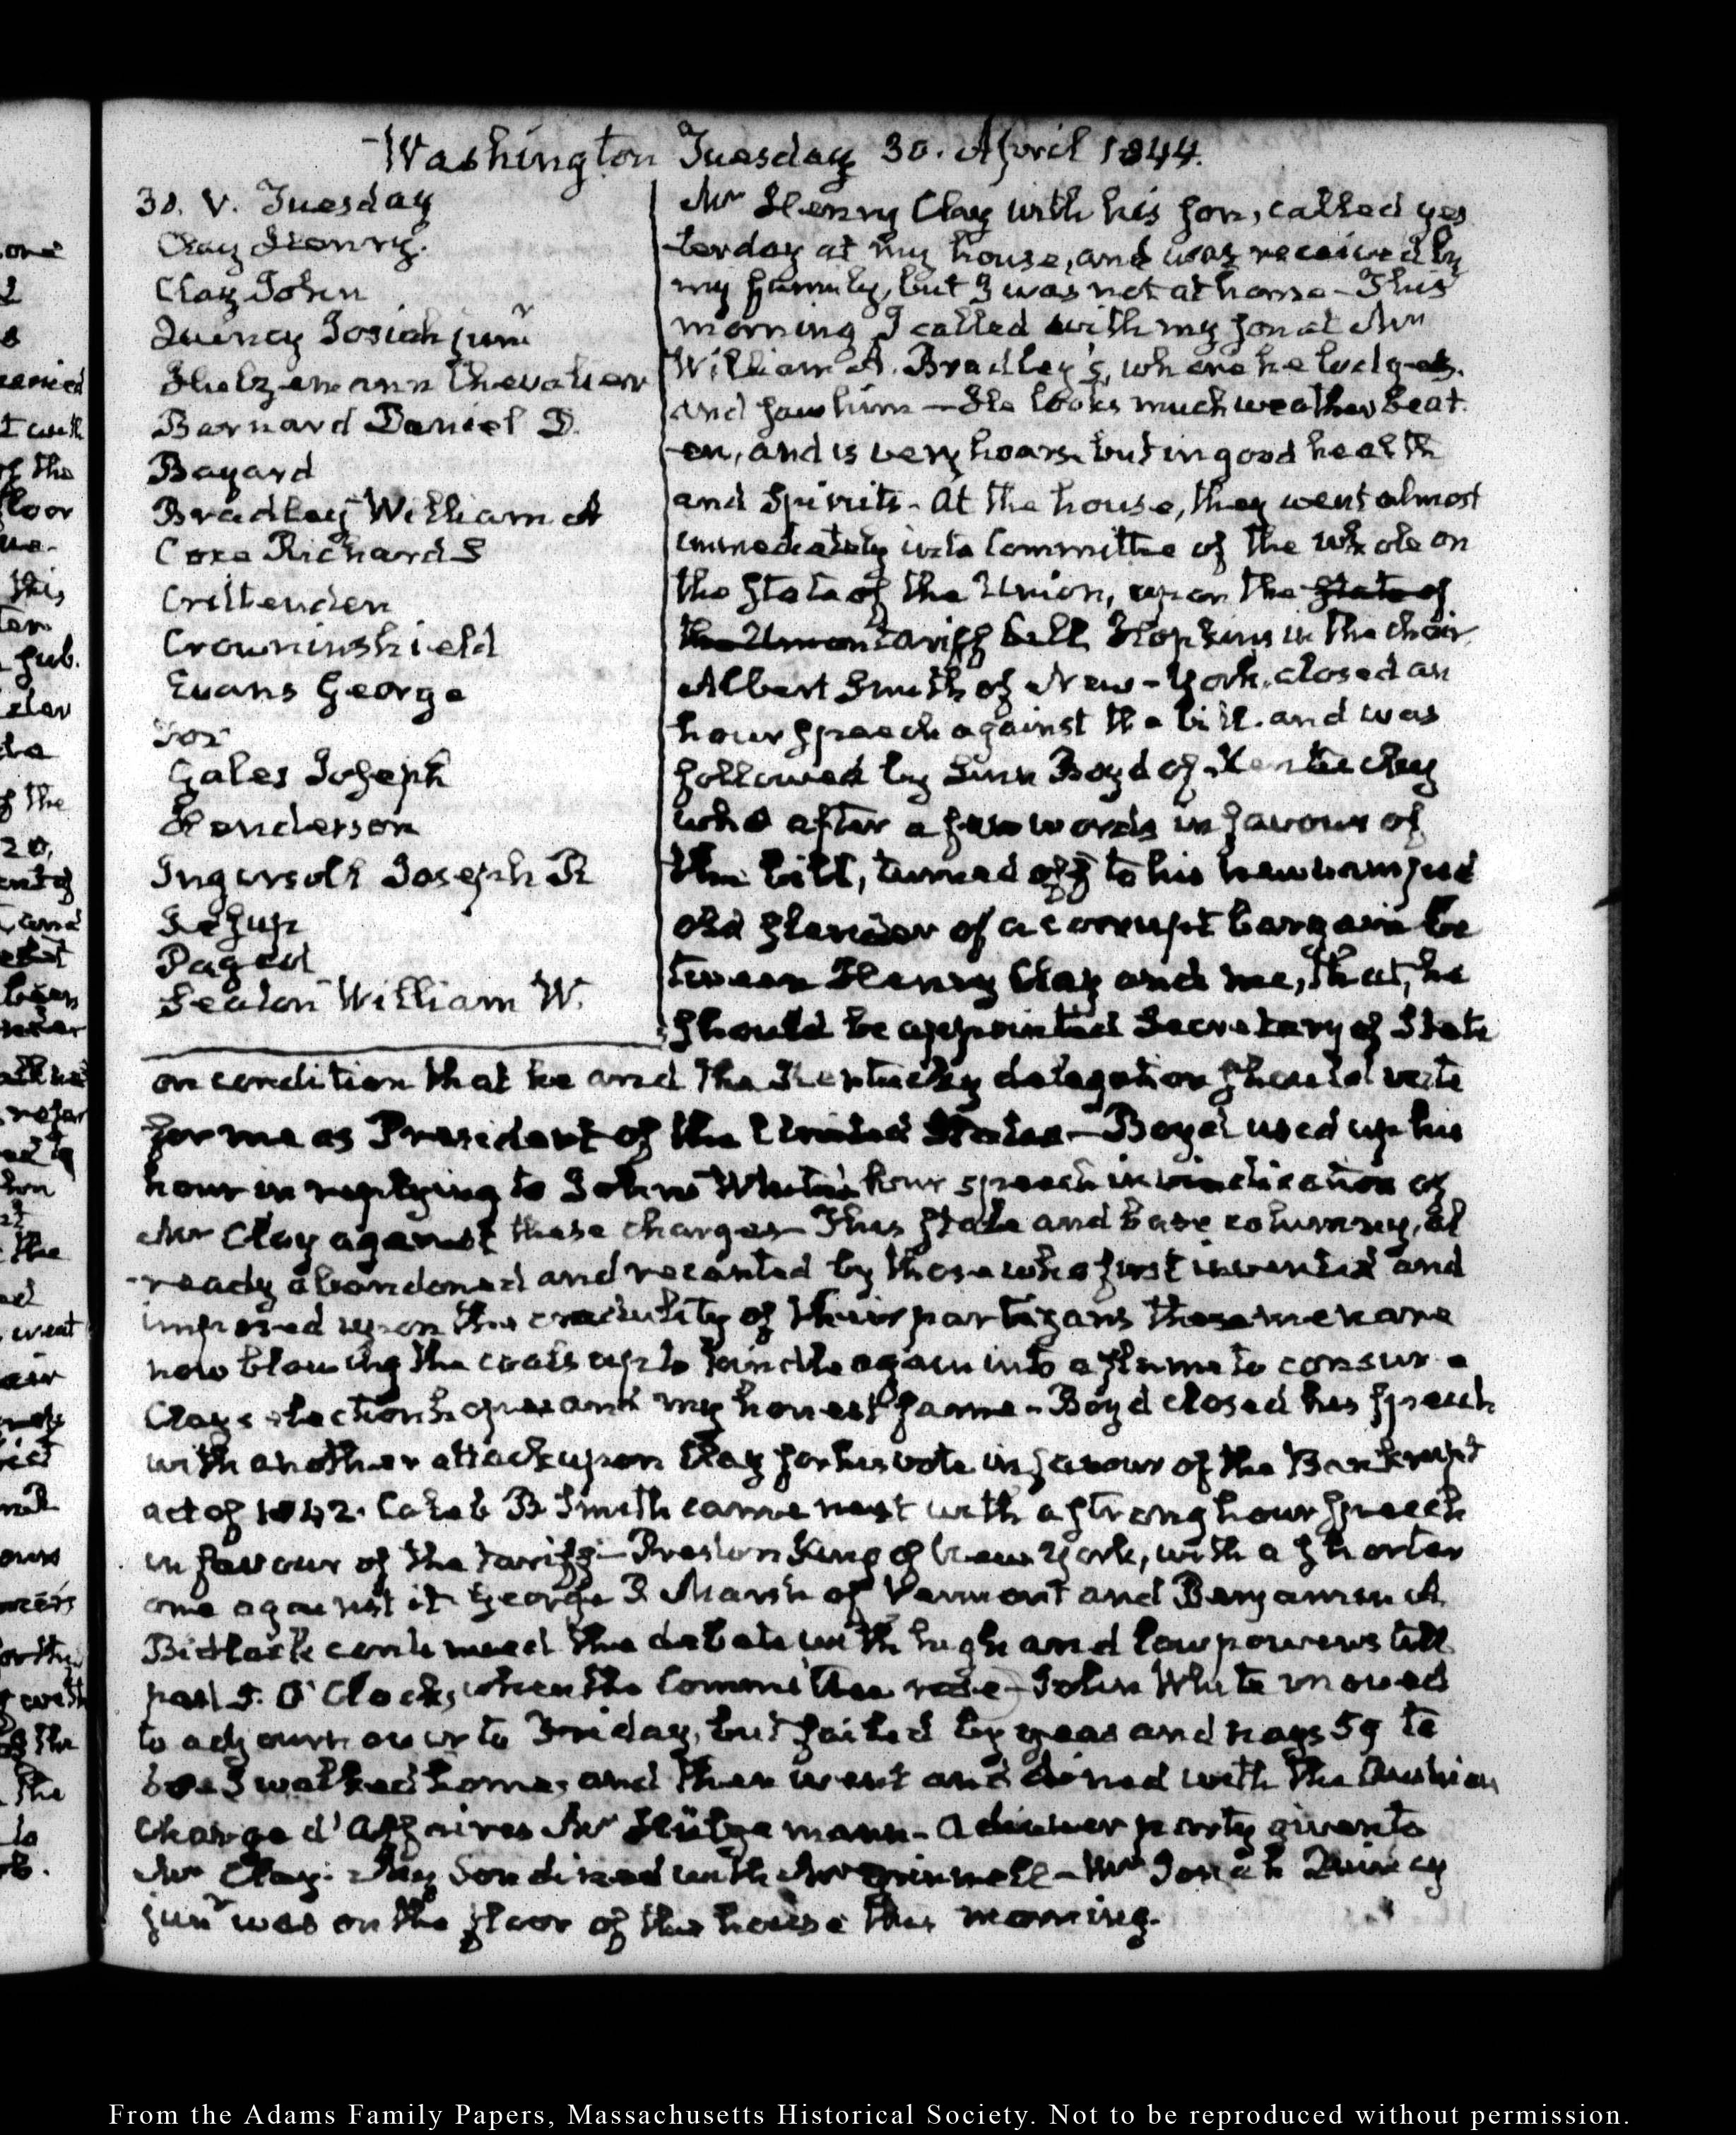 Washington Tuesday 30. April 1844.
30. V. Tuesday
Clay Henry.
Clay John
Quincy Josiah junr
Hulzemann Chevalier
Barnard Daniel D.
Bayard
Bradley William A
Coxe Richard S
Crittenden
Crowninshield
Evans George
Fox
Gales Joseph
Henderson
Ingersoll Joseph R
Jesup
Pageot
Seaton William W.
Mr Henry Clay with his son, called yes
terday at my house, and was received by
my family, but I was not at home - This
morning I called with my son at Mr
William A. Bradley's, where he lodges.
and saw him - He looks much weather beat-
en, and is very hoarse but in good health
and Spirits - At the house, they went almost
immediately into Committee of the whole on
the State of the Union, upon the State of
the Union tariff bill Hopkins in the chair.
Albert Smith of New-York, closed an
hour speech against the bill. and was
followed by Linn Boyd of Kentucky
who after a few words in favour of
the bill, turned off to his new vamped
old slander of a corrupt bargain be
tween Henry Clay and me, that, he
should be appointed Secretary of State
on condition that he and the Kentucky delegation should vote
for me as President of the United States - Boyd used up his
hour in replying to John White's hour speech in vindication of
Mr Clay against these charges - This stale and base calumny, al
-ready abandoned and recanted by those who first invented and
imposed upon the credulity of their partizans these men are
now blowing the coals up to kindle again into a flame to consume
Clay's election hopes and my honest fame - Boyd closed his speech
with another attack upon Clay for his vote in favour of the Bankrupt
act of 1842. Caleb B Smith came next with a strong hour speech
in favour of the tariff - Preston King of New York, with a shorter
one against it George P. Marsh of Vermont and Benjamin A
Bidlack continued the debate with high and low powers till
past 5. O'Clock, when the Committee rose - John White moved
to adjourn over to Friday, but failed by yeas and nays 59 to
I walked home, and then went and dined with the Austrian
Charge d'Affaires Mr Hülzemann - A dinner party given to
Mr Clay. My Son dined with Mr Grinnell - Mr Josiah Quincy
junr was on the floor of the house this morning.
From the Adams Family Papers, Massachusetts Historical Society. Not to be reproduced without permission.